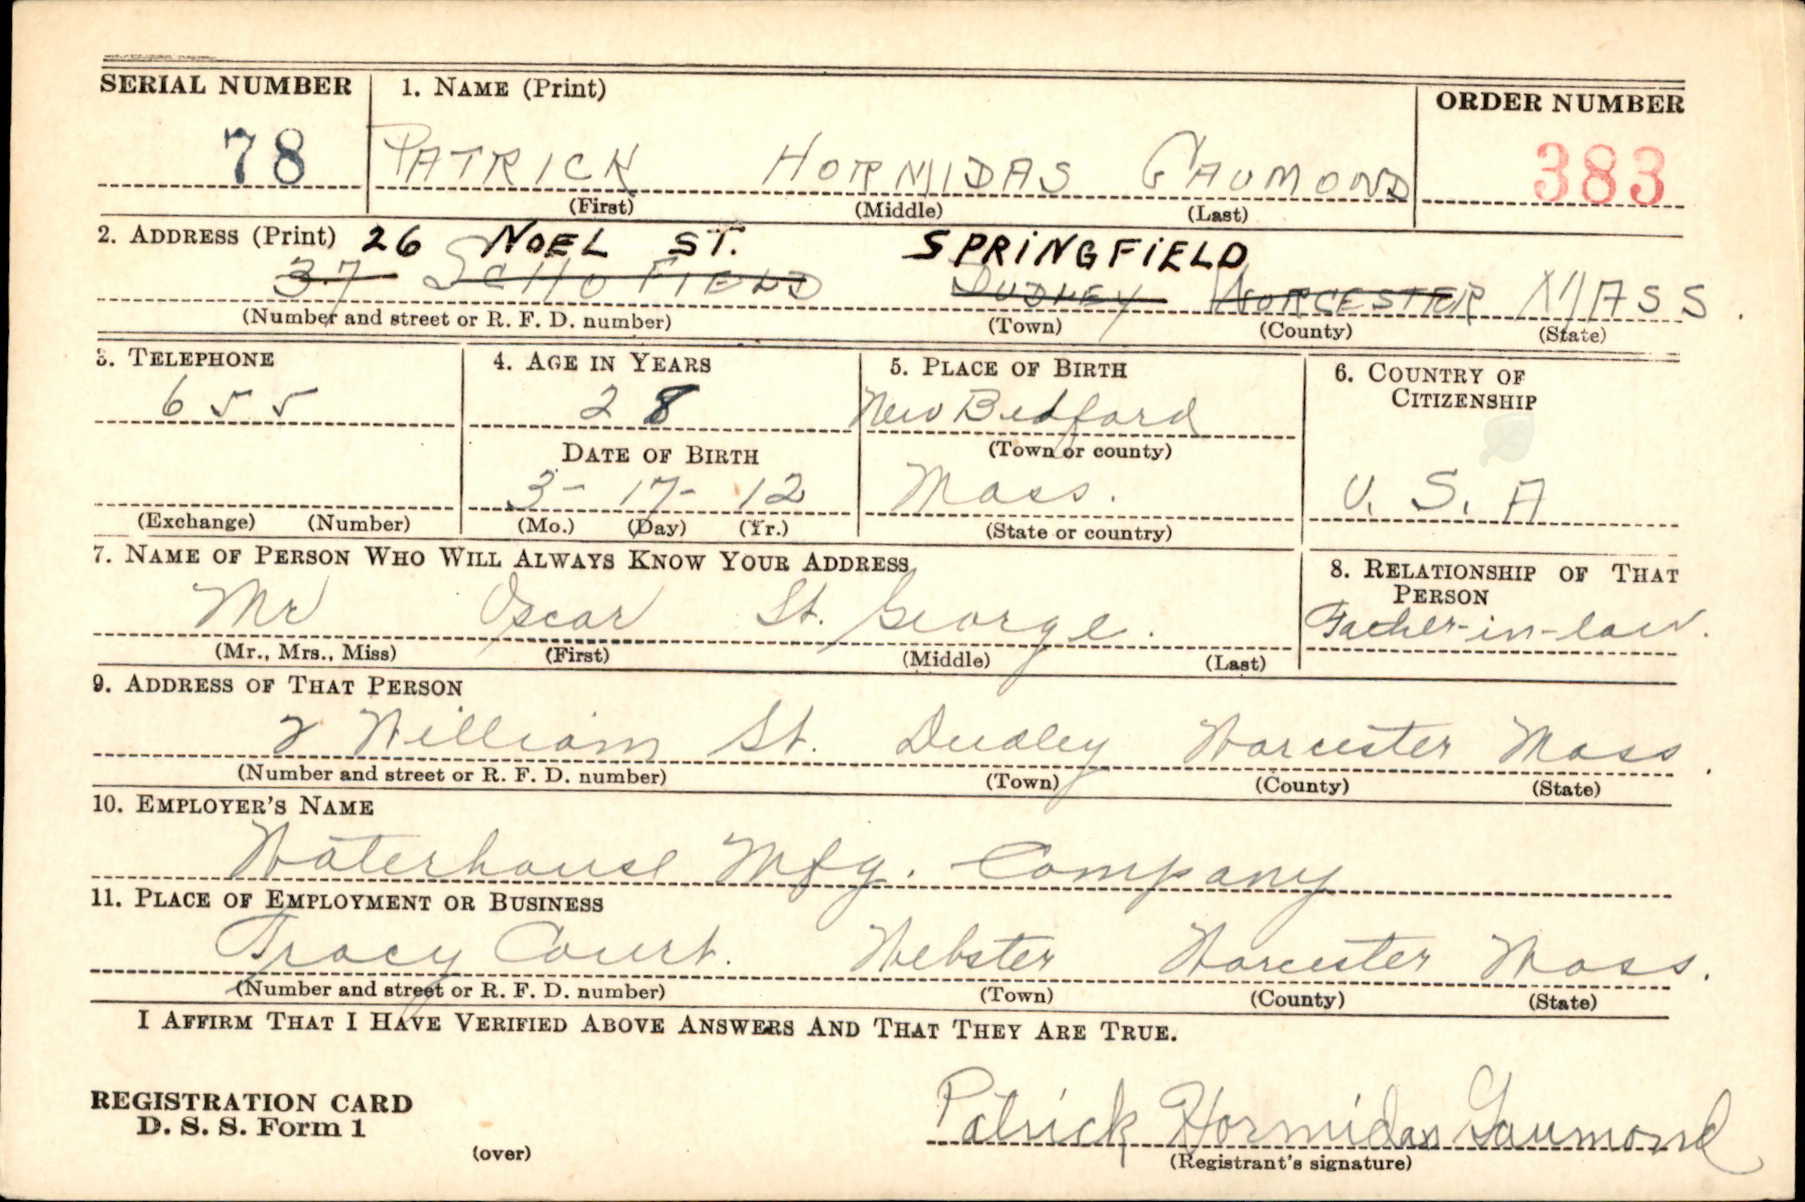 SERIAL NUMBER 1. NAME (Print) ORDER NUMBER
78 PATRICK HORMIDAS GAUMOND 383
(First) (Middle) (Last)
2. ADDRESS (Print) 26 NOEL ST. SPRINGFIELD
37 SCHOFIELD DUDLEY WORCESTER MASS.
(Number and street or R. F. D. number) (Town) (County) (State)
3. TELEPHONE 4. AGE IN YEARS 5. PLACE OF BIRTH 6. COUNTRY OF CITIZENSHIP
655 28 New Bedford
(Town or county)
DATE OF BIRTH
3-17-12 Mass. U.S.A
(Exchange) (Number) (Mo.) (Day) (Yr.) (State or country)
7. NAME OF PERSON WHO WILL ALWAYS KNOW YOUR ADDRESS 8. RELATIONSHIP OF THAT PERSON
Mr Oscar St. George. Father-in-law.
(Mr., Mrs., Miss) (First) (Middle) (Last)
9. ADDRESS OF THAT PERSON
2 William St. Dudley Worcester Mass.
(Number and street or R. F. D. number) (Town) (County) (State)
10. EMPLOYER'S NAME
Waterhouse Mfg. Company
11. PLACE OF EMPLOYMENT OR BUSINESS
Tracy Court. Webster Worcester Mass.
(Number and street or R. F. D. number) (Town) (County) (State)
I AFFIRM THAT I HAVE VERIFIED ABOVE ANSWERS AND THAT THEY ARE TRUE.
REGISTRATION CARD
D. S. S. Form 1
(over)
Patrick Hormidas Gaumond
(Registrant's signature)